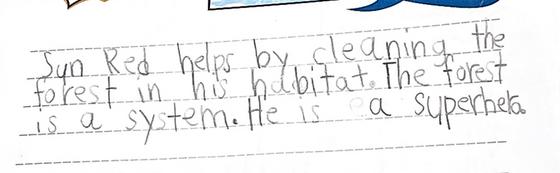 Sun Red helps by cleaning the
forest in his habitat. The forest
is a system. He is a superhero.